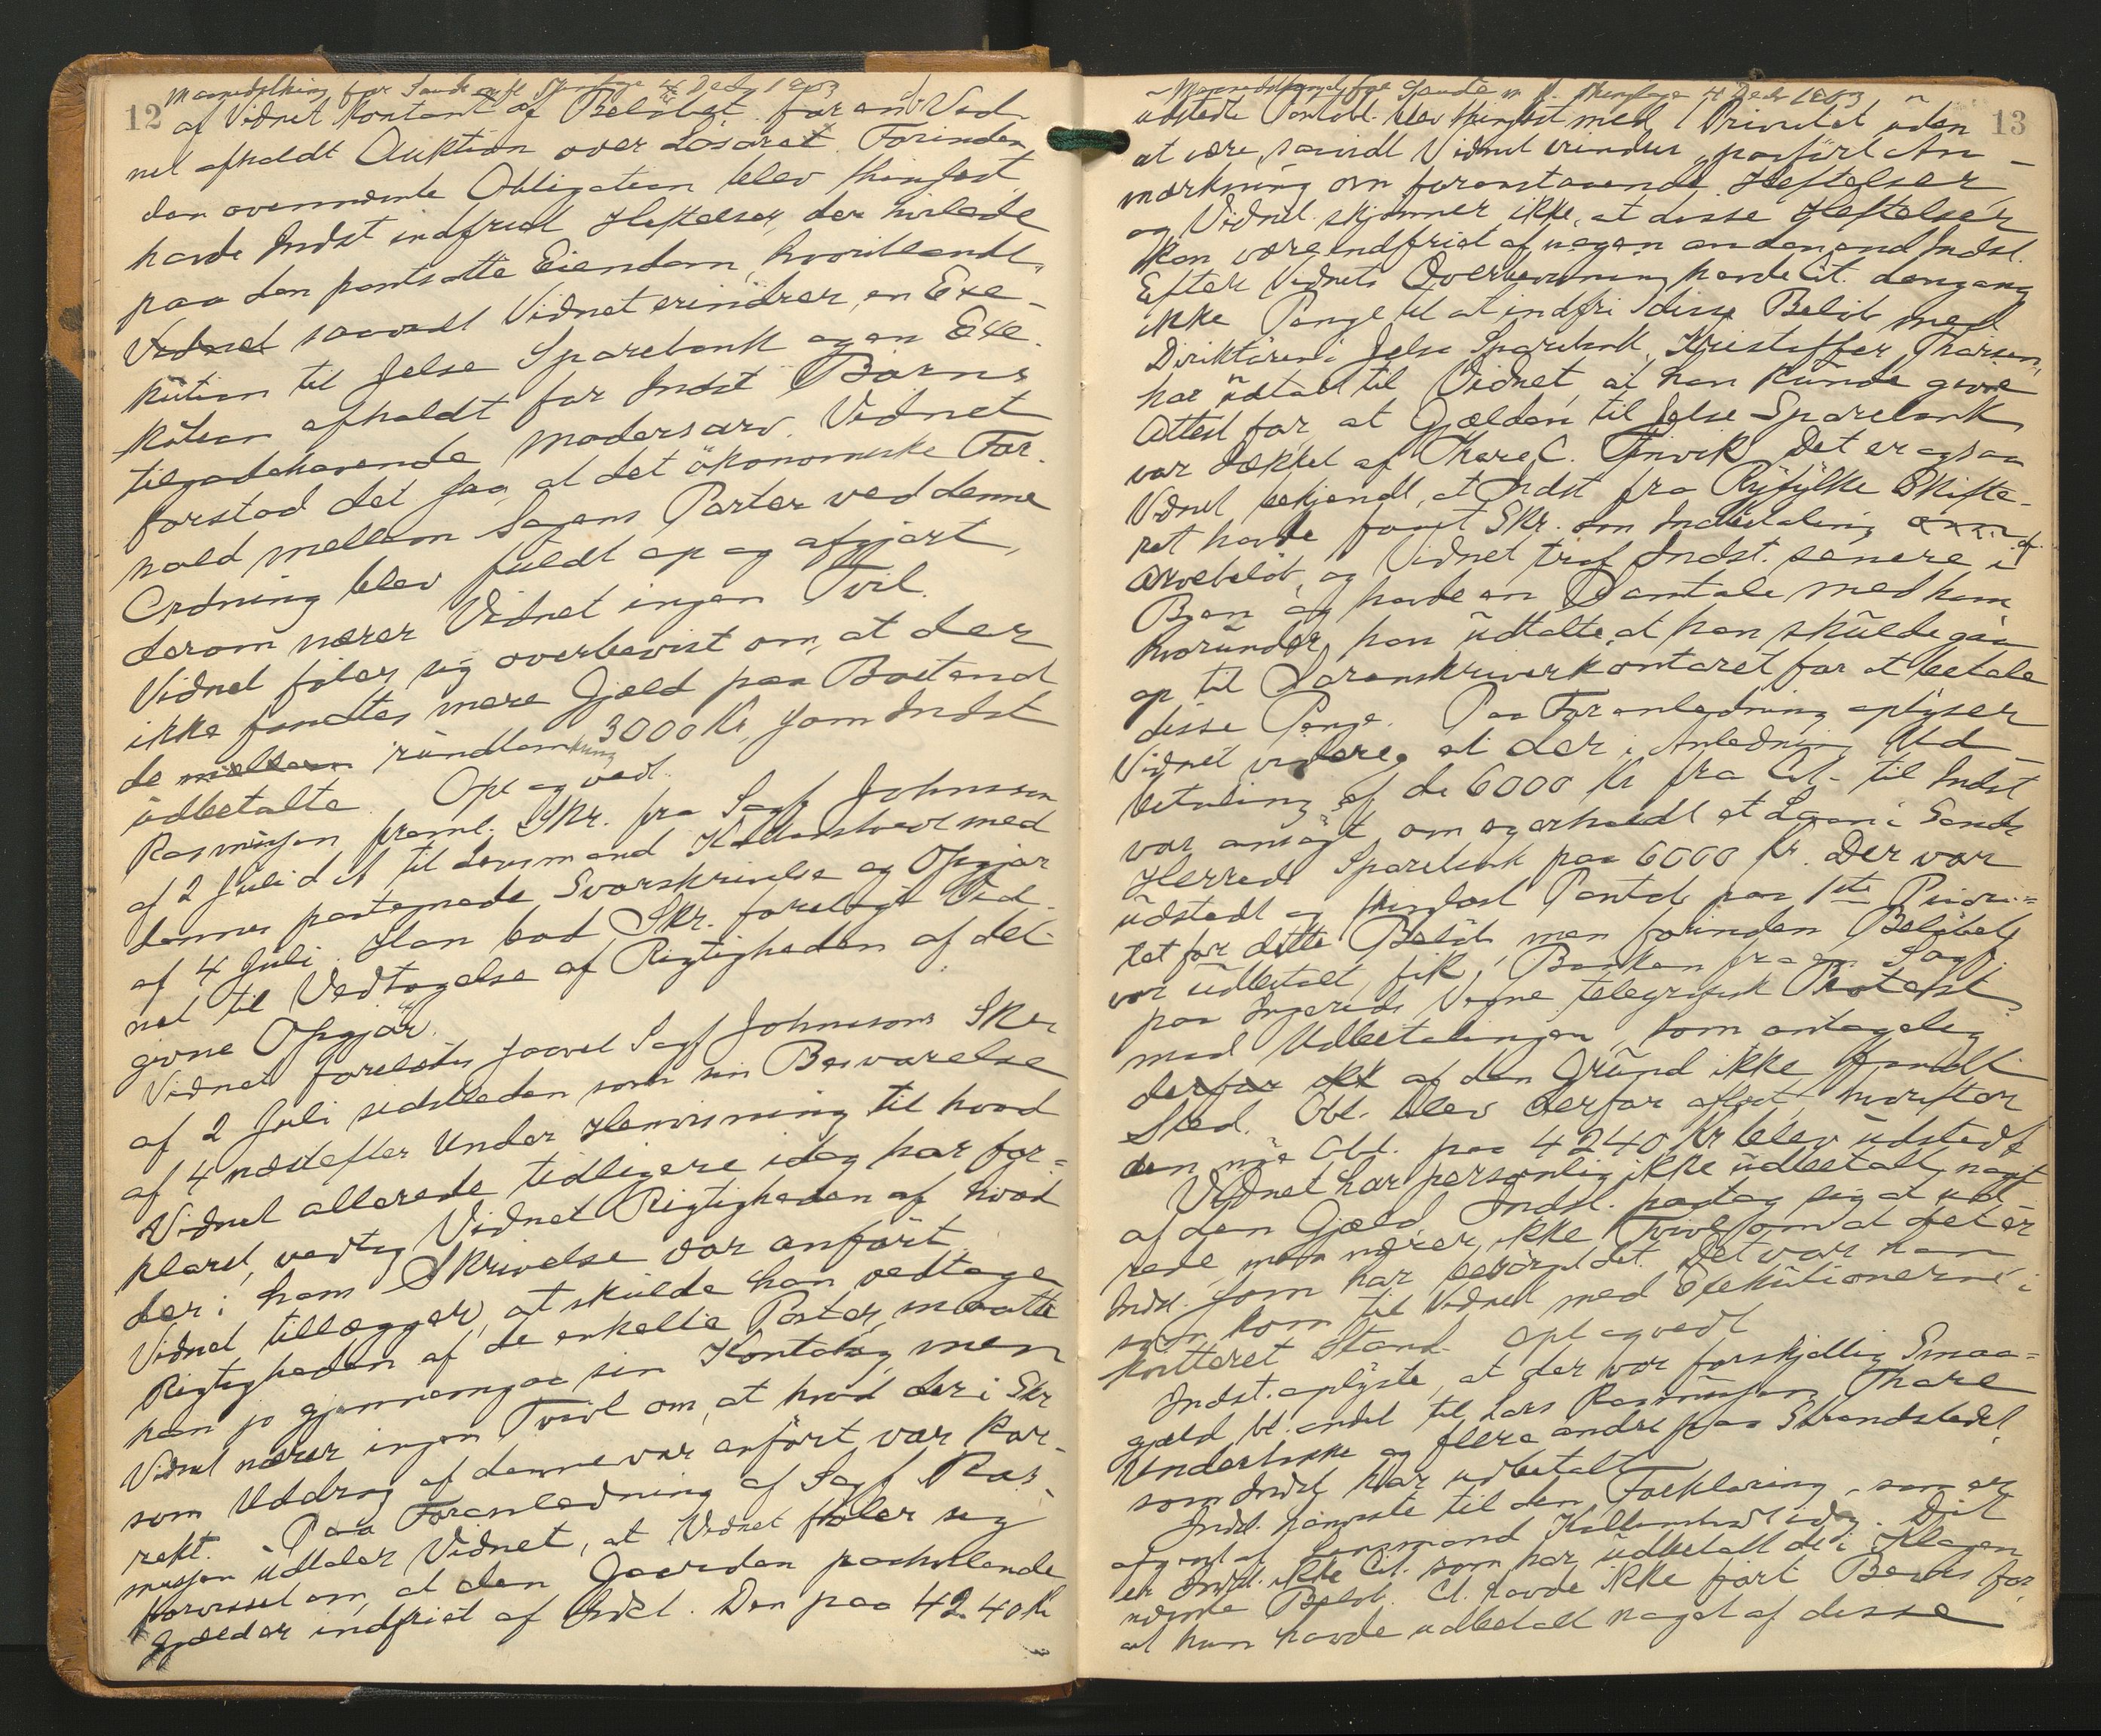 12
Maanedsthing for Sande m fl Thinglag 4 Decb 1903
af Vidnet kontant og Beløbet før end Vid-
net afholdt Auktion over Løsøret. Forinden
den ovennævnte Obligation blev thinglæst
havde Indst indfriet Heftelser, der hvilede
paa den pantsatte Eiendom, hvoriblandt,
Vidnet saavidt Vidnet erindrer, en Exe-
kution til Jelse Sparebank og en Exe-
kution afholdt for Indst Børns
tilgodehavende Mødrearv. Vidnet
forstod det saa, at det økonomiske For-
hold mellem Sagens Parter ved denne
Ordning blev fuldt op og afgjort,
derom nærer Vidnet ingen Tvil.
Vidnet føler sig overbevist om, at der
ikke fandtes mere Gjæld paa Bostand
de mellem rundtomkring 3000 Kr, som Indst
udbetalte. Opl og vedt.
Rasmussen freml. Skr. fra Sagf Johnsen
af 2 Juli d A til Lensmand Kollenstvedt med
dennes paategnede Svarskrivelse og Opgjør
af 4 Juli. Han bad Skr. forelagt Vid-
net til Vedtagelse af Rigtigheden af det
givne Opgjør.
Vidnet forelæstes saavel Sagf Johnsons Skr
af 2 Juli sidstleden som sin Besvarelse
af 4 næstefter. Under Henvisning til hvad
Vidnet allerede tidligere idag har for-
klaret, vedtog Vidnet Rigtigheden af hvad
der i hans Skrivelse var anført.
Vidnet tillægger, at skulde han vedtage
Rigtigheden af de enkelte Poster, maatte
han jo gjennemgaa sin Kontobog, men
Vidnet nærer ingen Tvivl om, at hvad der i Skr
som Uddrag af denne var anført, var kor-
rekt. Paa Foranledning af Sagf. Ras-
mussen udtaler Vidnet, at Vidnet føler sig
forvisset om, at den Gaarden paahvilende
Gjæld er indfriet af Indst. Den paa 4240 Kr
13
Maanedsthing for Sande m fl. Thinglag 4 Decb 1903
udstedte Pantobl. blev thinglæst med 1 Prioritet uden
at være, saavidt Vidnet erindrer, paaført An-
mærkning om foranstaaende Heftelser,
og Vidnet skjønner ikke, at disse Heftelser
kan være indfriet af nogen anden end Indst.
Efter Vidnets Overbevisning havde Cit. dengang
ikke Penge til at indfri disse Beløb med
Direktøren i Jelse Sparebank, Kristoffer Thorsen,
har udtalt til Vidnet, at han kunde give
Attest for, at Gjælden til Jelse Sparebank
var dækket af Thore C. Det er ogsaa
Vidnet bekjendt, at Indst fra Ryfylke Skifte-
ret havde faaet Skr. om Indbetaling af
Arvebeløb, og Vidnet traf Indst. senere i
Byen og havde en Samtale med ham
hvorunder han udtalte, at han skulde gaa
op til Sorenskriverkontoret for at betale
disse Penge. Paa Foranledning oplyser
Vidnet videre, at der i Anledning Ud-
betaling af de 6000 Kr fra Cit. til Indst
var ansøgt om og erholdt et Laan i Sands
Herreds Sparebank paa 6000 Kr. Der var
udstedt og thinglæst Pantobl paa 1ste Priori-
tet for dette Beløb, men forinden Beløbet
var udbetalt, fik Banken fra en Sagf.
paa Ingerids Vegne telegrafisk Protest
mod Udbetalingen, som antagelig
derfor ikk af den Grund ikke fandt
Sted. Obl. blev derfor aflyst, hvorefter
den nye Obl. paa 4240 Kr blev udstedt.
Vidnet har personlig ikke udbetalt noget
af den Gjæld, Indst. paatog sig at ud-
rede, men nærer ikke Tvivl om at det er
Indst. som har besørget det. Det var han
som kom til Vidnet med Exekutionerne i
kvitteret Stand. Opl og vedt
Indst. oplyste, at der var forskjellig Smaa-
gjæld, bl. andet til Lars Rasmussen, Thore
og flere andre paa Strandstedet,
som Indst har udbetalt.
Indst. henviste til den Forklaring, som er
afgivet af Lensmand Kollenstvedt idag. Det
er Indst. ikke Cit. som har udbetalt de i Klagen
nævnte Beløb. Cit. havde ikke ført Bevis for,
at hun havde udbetalt noget af disse